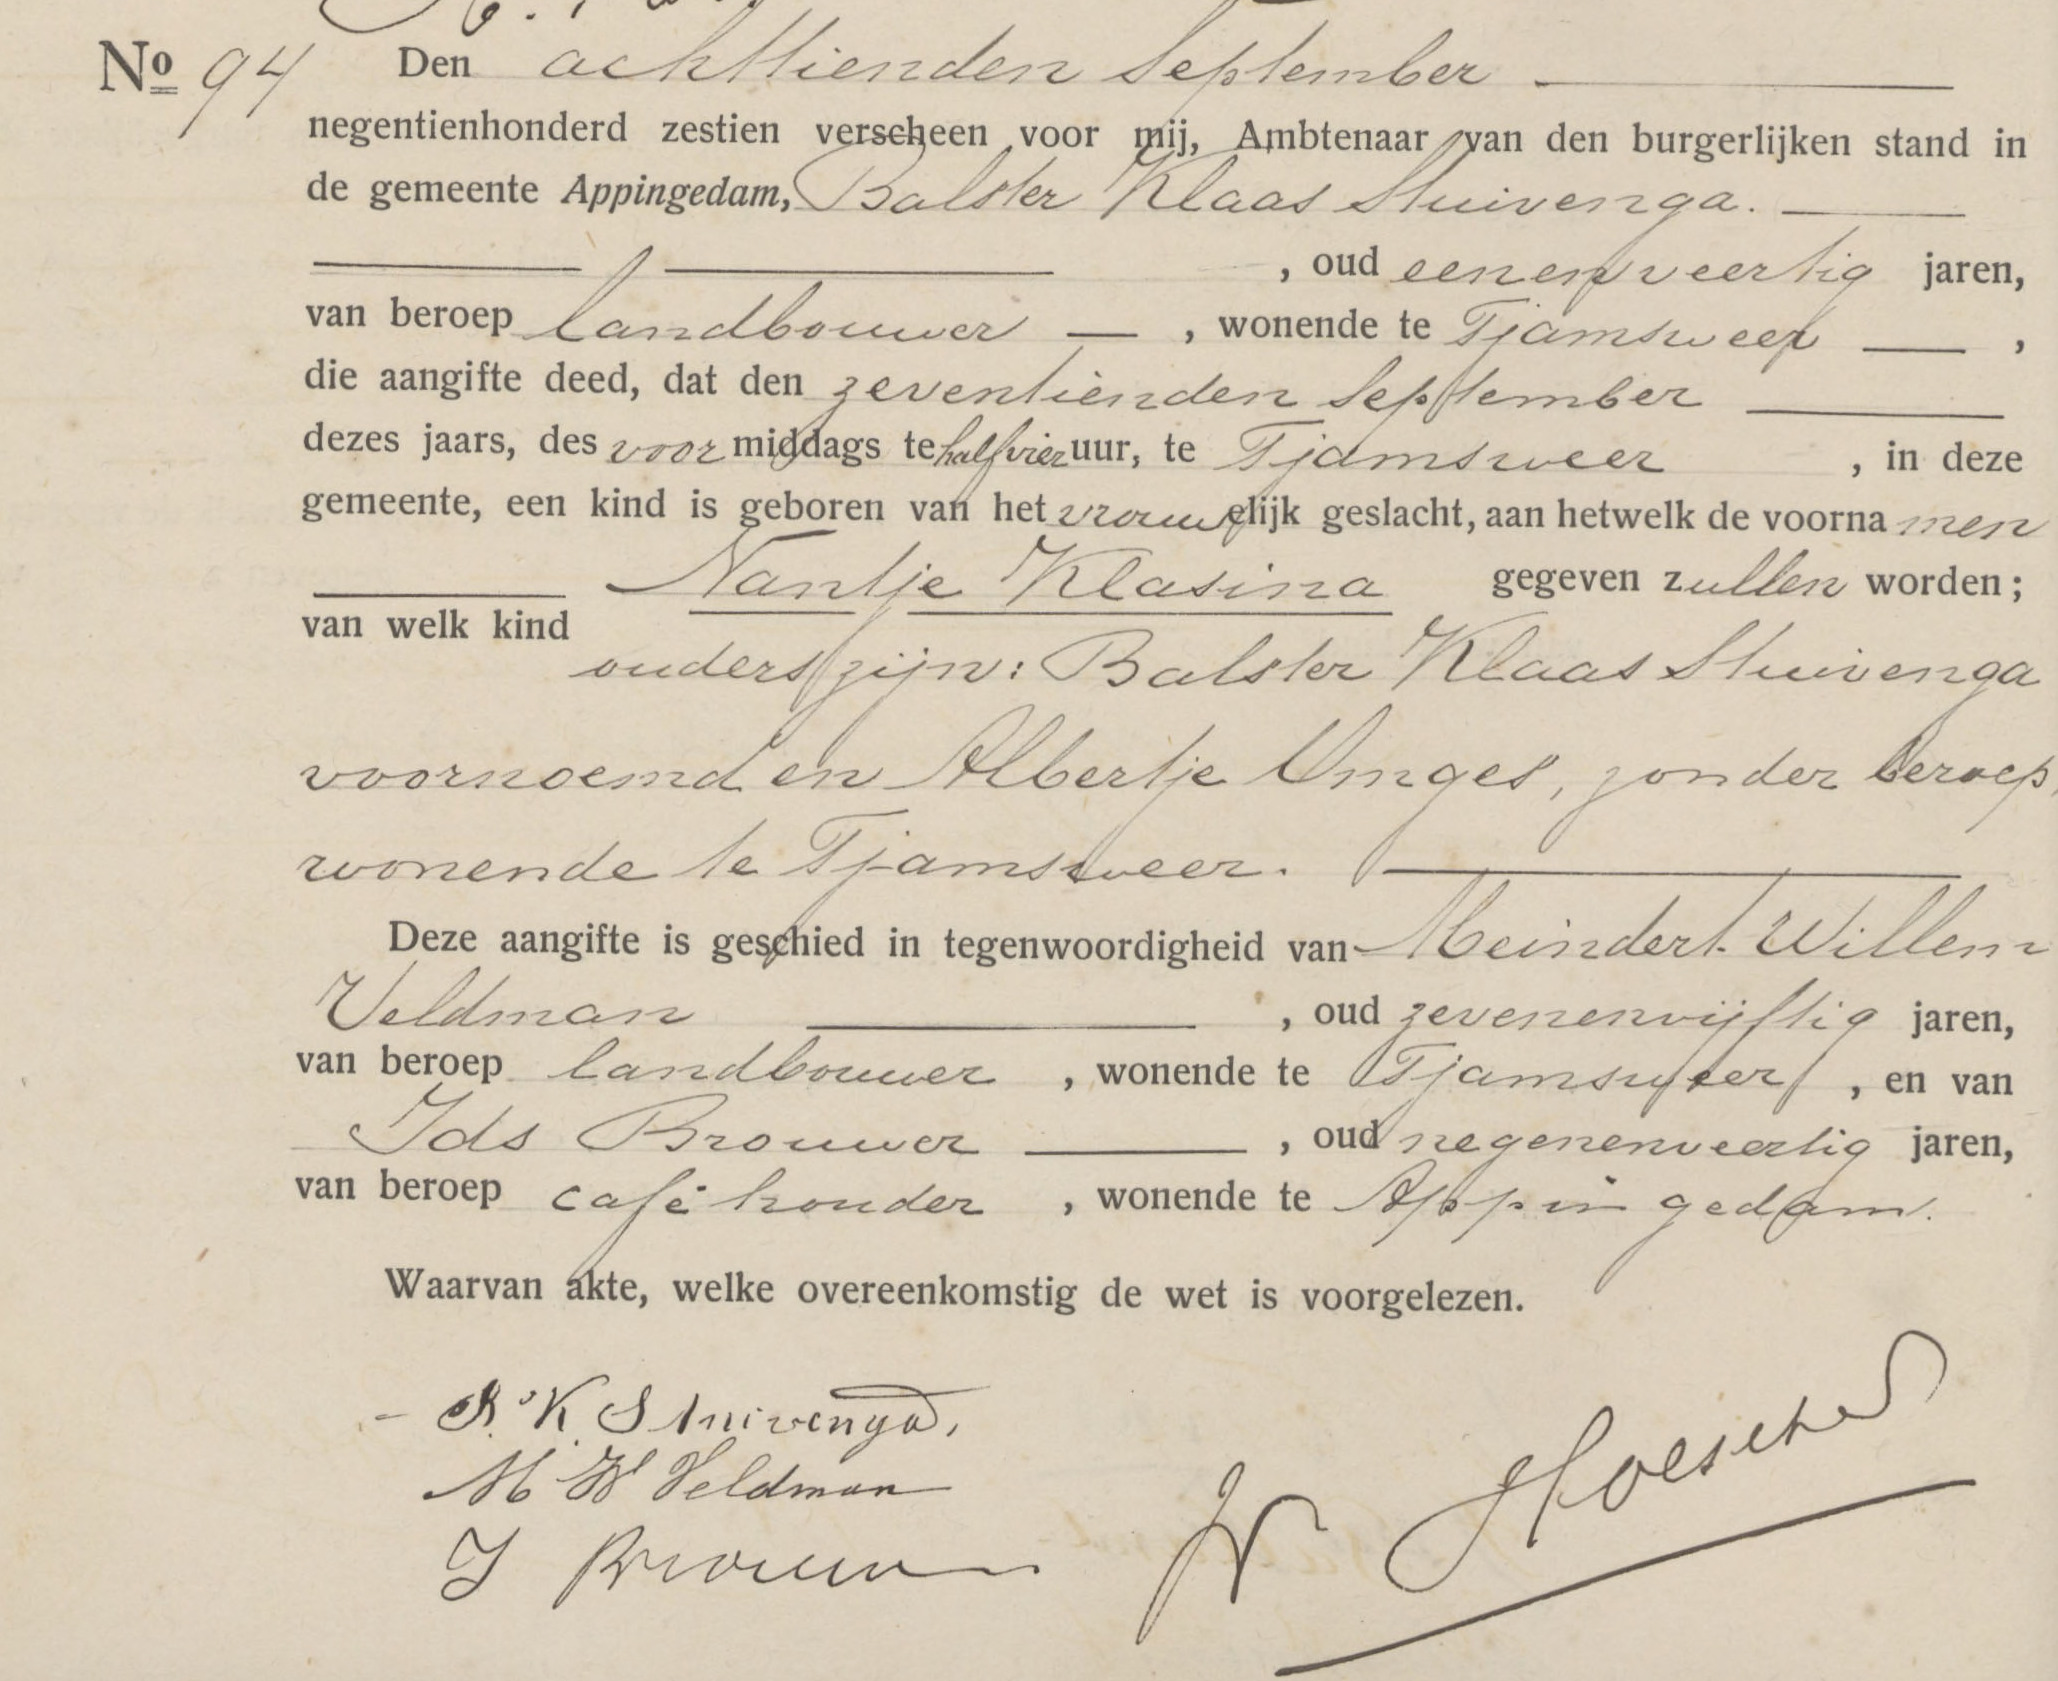 No 94 Den achttienden September
negentienhonderd zestien verscheen voor mij, Ambtenaar van den burgerlijken stand in
de gemeente Appingedam, Balster Klaas Stuivenga.
, oud eenenveertig jaren,
van beroep landbouwer , wonende te Tjamsweer ,
die aangifte deed, dat den zeventienden September
dezes jaars, des voormiddags te half vier uur, te Tjamsweer , in deze
gemeente, een kind is geboren van het vrouwelijk geslacht, aan hetwelk de voornamen
Nantje Klasina gegeven zullen worden;
van welk kind
ouders zijn: Balster Klaas Stuivenga
voornoemd en Albertje Omges, zonder beroep,
wonende te Tjamsweer.
Deze aangifte is geschied in tegenwoordigheid van Meindert Willem
Veldman , oud zevenenvijftig jaren,
van beroep landbouwer , wonende te Tjamsweer , en van
Ids Brouwer , oud negenenveertig jaren,
van beroep caféhouder , wonende te Appingedam.
Waarvan akte, welke overeenkomstig de wet is voorgelezen.
B. K. Stuivenga,
M W Veldman
I Brouwer